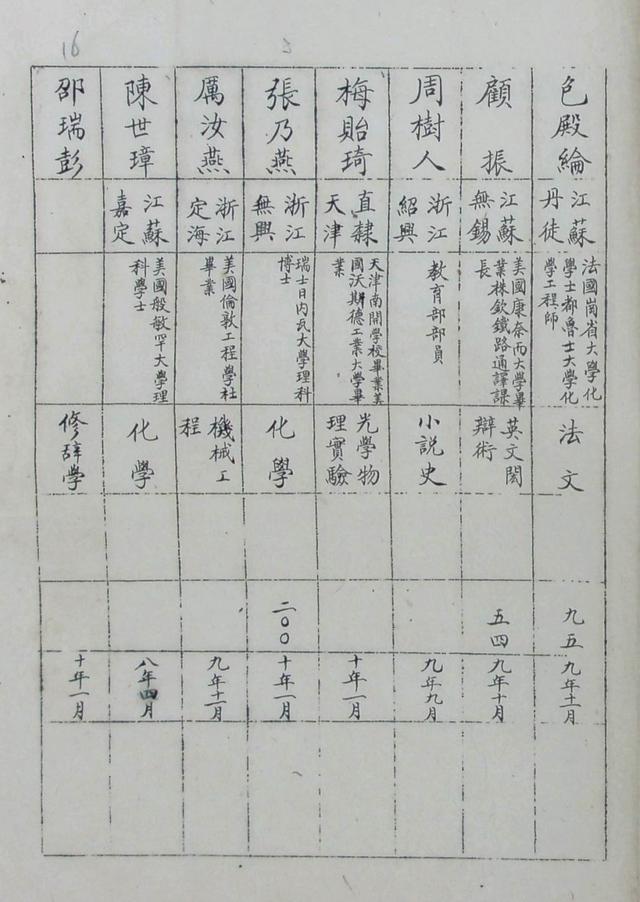 色殿綸
江蘇
丹徒
法國崗省大學化
學士都魯士大學化
學工程師
法文
九五
九年十一月
顧振
江蘇
無錫
美國康奈而大學畢
業株欽鐵路通譯課
長
英文閎
辯術
五四
九年十月
周樹人
浙江
紹興
教育部部員
小説史
九年九月
梅貽琦
直隸
天津
天津南開學校畢業美
國沃斯德工業大學畢
業
光學物
理實驗
十年一月
張乃燕
浙江
無興
瑞士日内瓦大學理科
博士
化學
二〇〇
十年一月
厲汝燕
浙江
定海
美國倫敦工程學社
畢業
機械工
程
九年十一月
陳世璋
江蘇
嘉定
美國般敏罕大學理
科學士
化學
八年四月
邵瑞彭
修辞學
十年一月
16
5